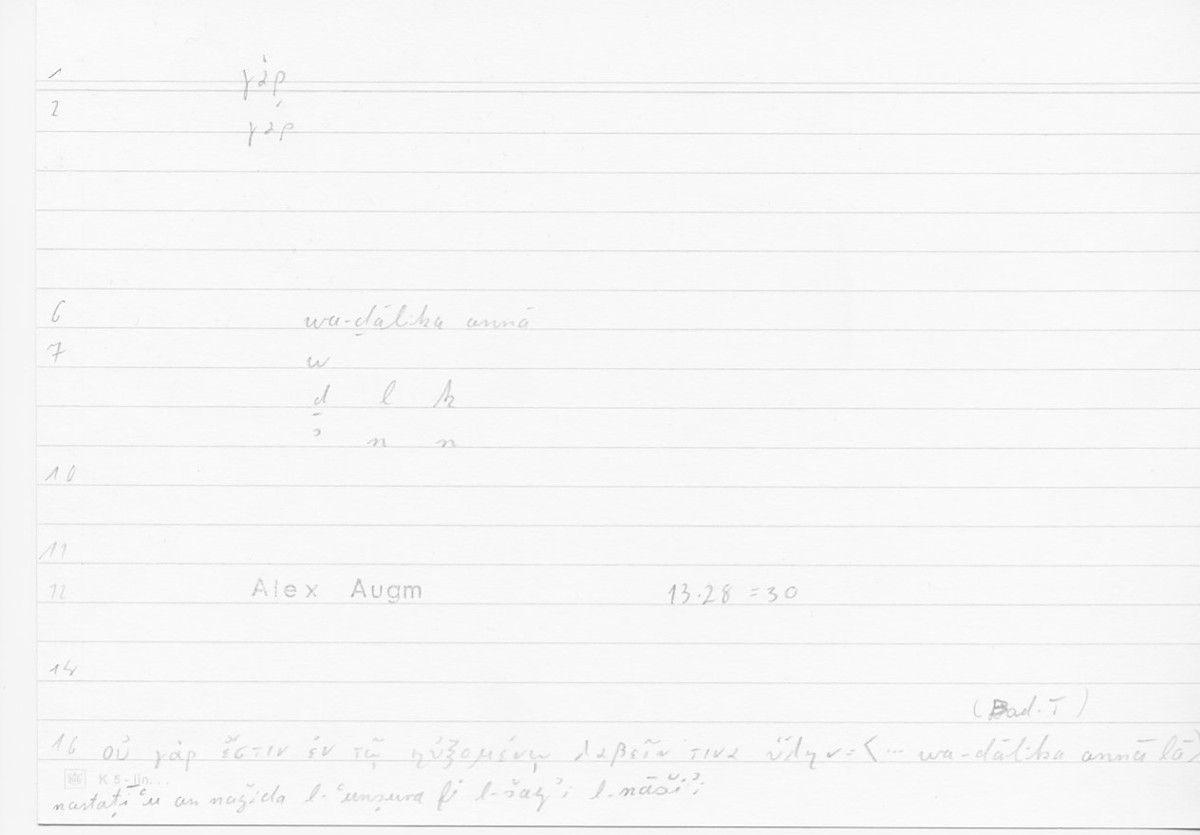 1 γὰρ
2 γάρ
6 wa-ḏālika annā
7 w
ḏ l k
ʾ n n
10
11
12 Alex Augm 13.28 = 30
14
(Bad. T)
16 οὐ γὰρ ἔστιν ἐν τῷ ηὐξομένῳ λαβεῖν τινα ὕλην = < ... wa-ḏālika annā lā >
K 5-lin...
nastaṭīʿu an naǧida l-ʿunṣura fī l-šayʾi l-nāšiʾi